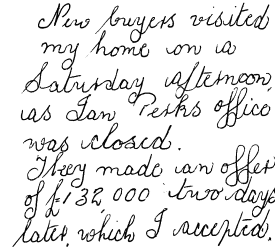 New buyers visited
my home on a
Saturday afternoon,
as Ian Perks office
was closed.
They made an offer
of £132,000 two days
later, which I accepted.